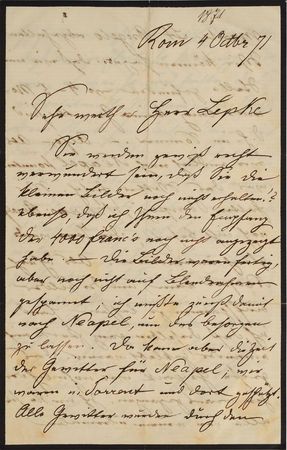 1871
Rom 4 Octbr 71
Sehr werther Herr Lepke
Sie werden gewiß recht
verwundert sein, daß Sie die
kleinen Bilder noch nicht erhalten?
ebenso, daß ich Ihnen den Empfang
der 4000 Francs noch nicht angezeigt
habe — Die Bilder waren fertig,
aber noch nicht auf Blendrahmen
gespannt; ich mußte zuerst damit
nach Neapel, um das besorgen
zu lassen. Da kam aber die Zeit
der Gewitter für Neapel; wir
waren in Sorrent und dort
Alle Gewitter wurden durch den